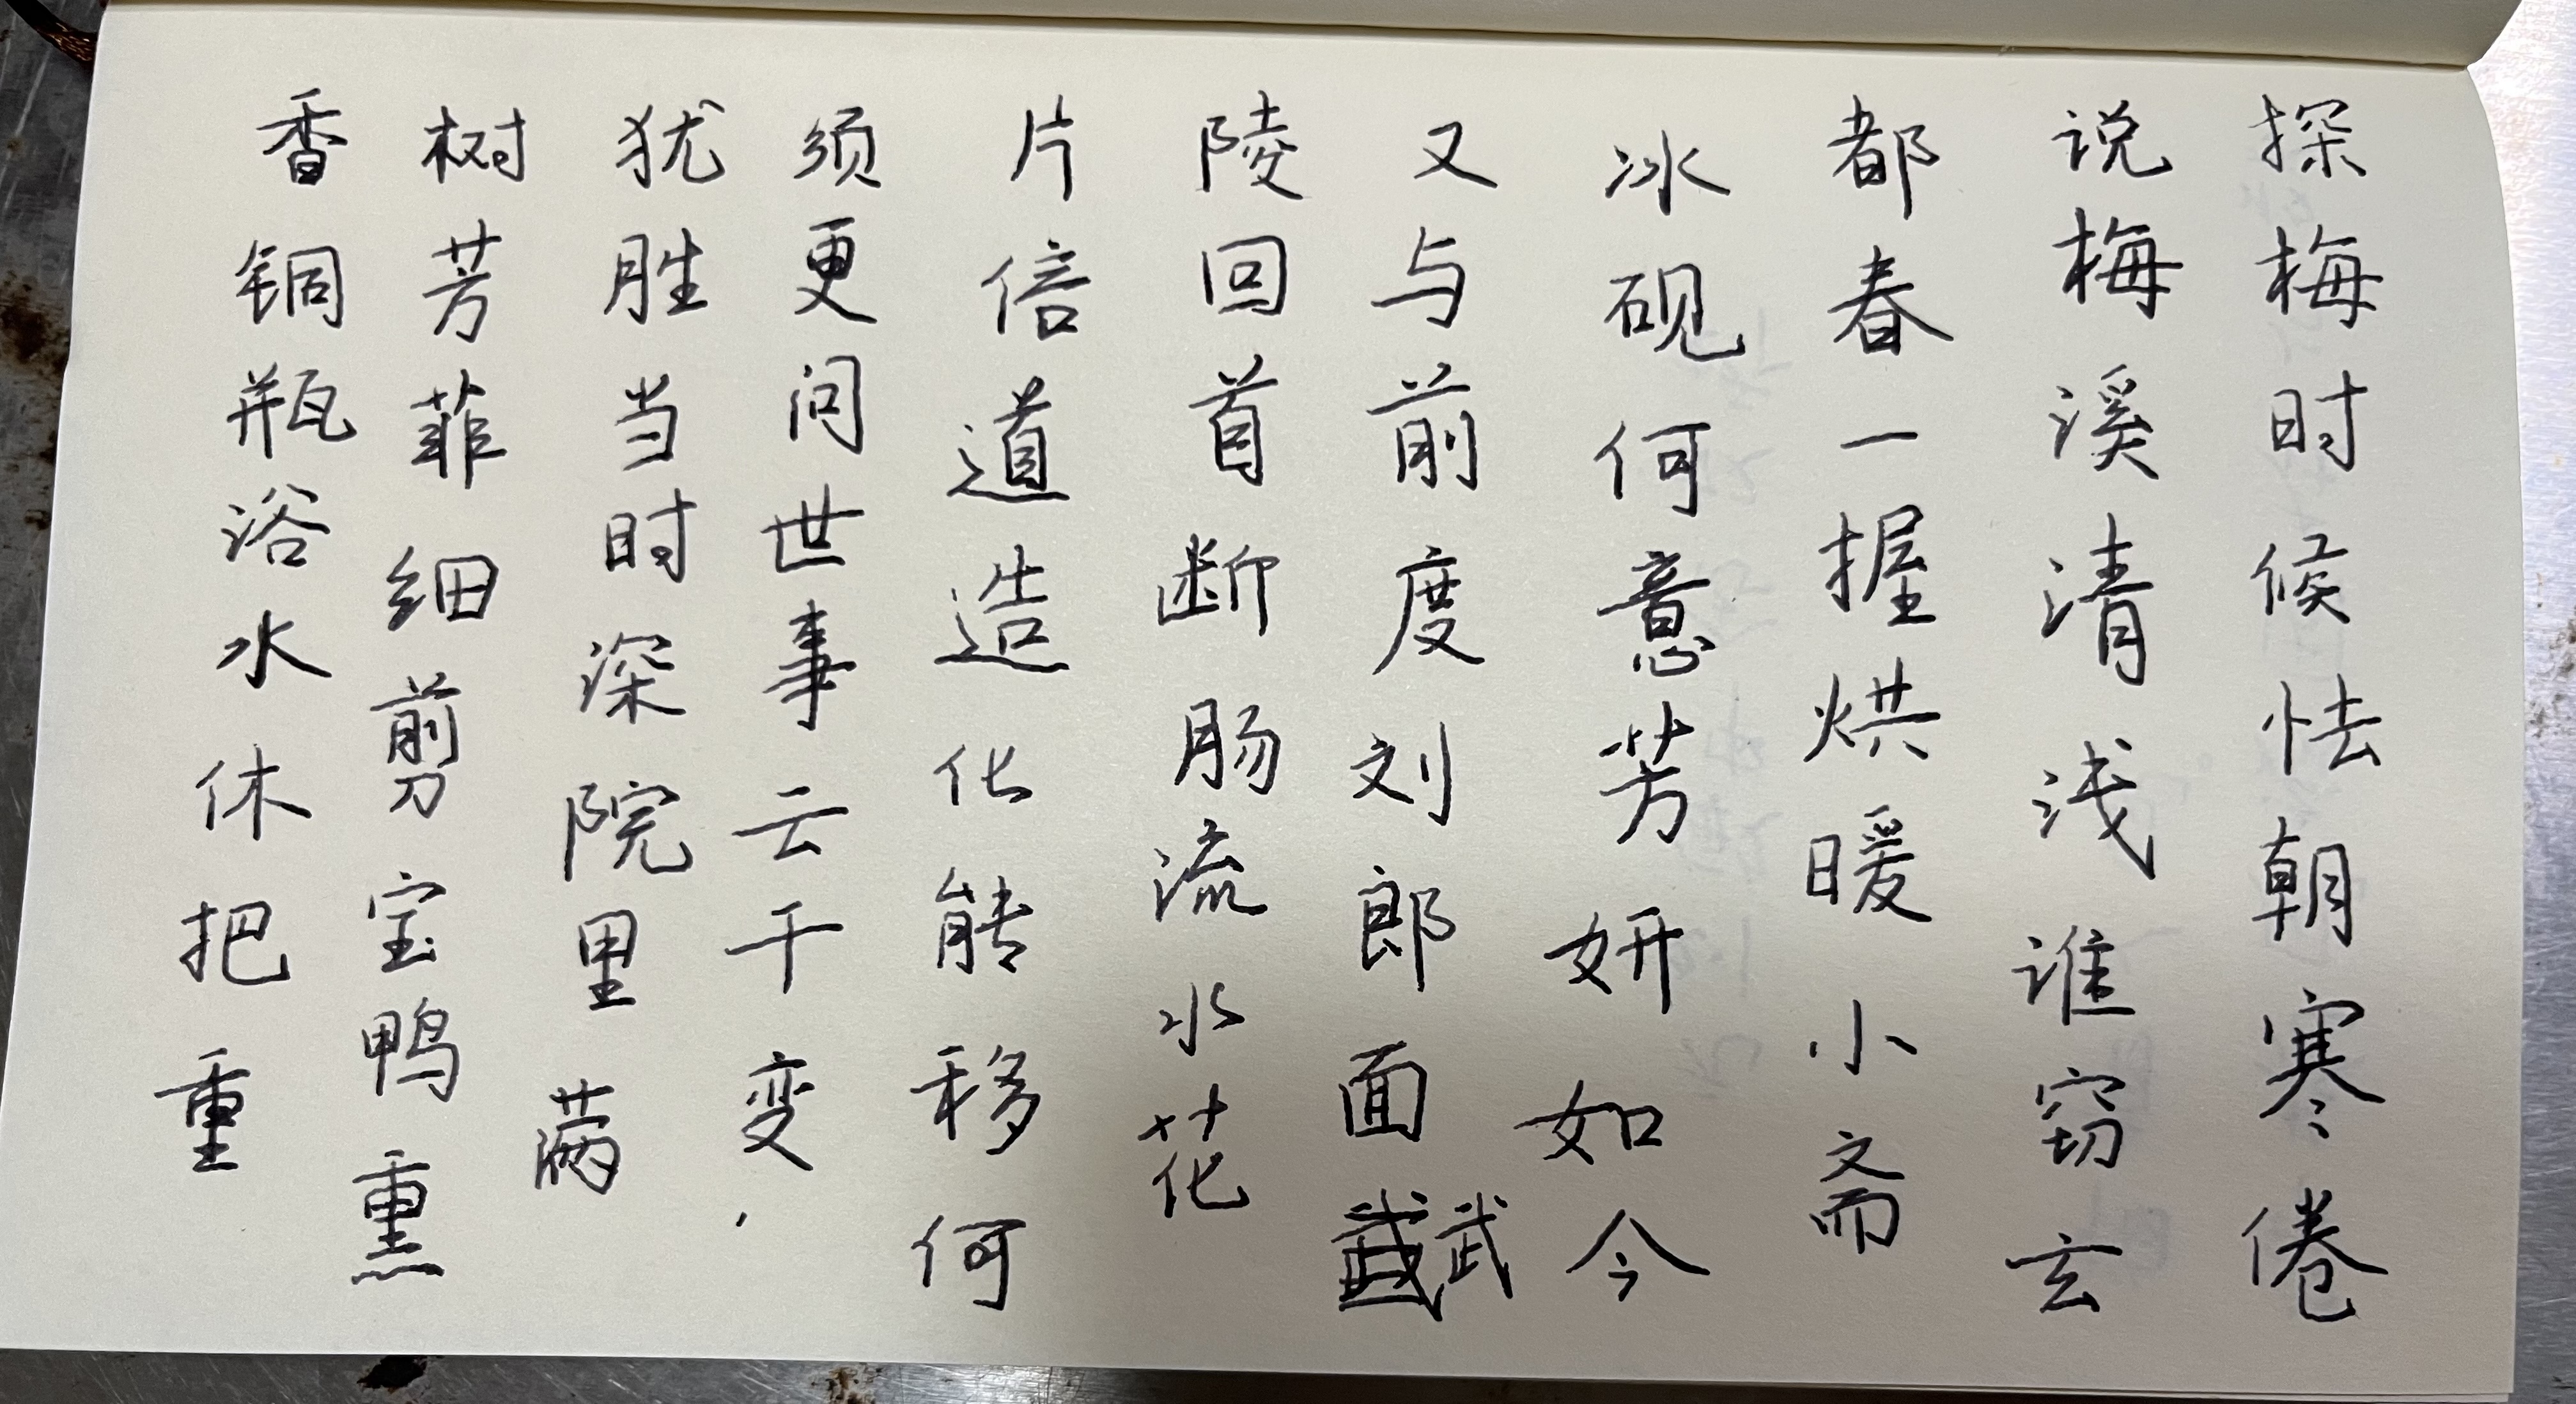 探梅时候怯朝寒倦
说梅溪清浅谁窃玄
都春一握烘暖小斋
冰砚何意芳妍如今
又与前度刘郎面武
陵回首断肠流水花
片倍道造化能移何
须更问世事云千变，
犹胜当时深院里满
树芳菲细剪宝鸭熏
香铜瓶浴水休把重